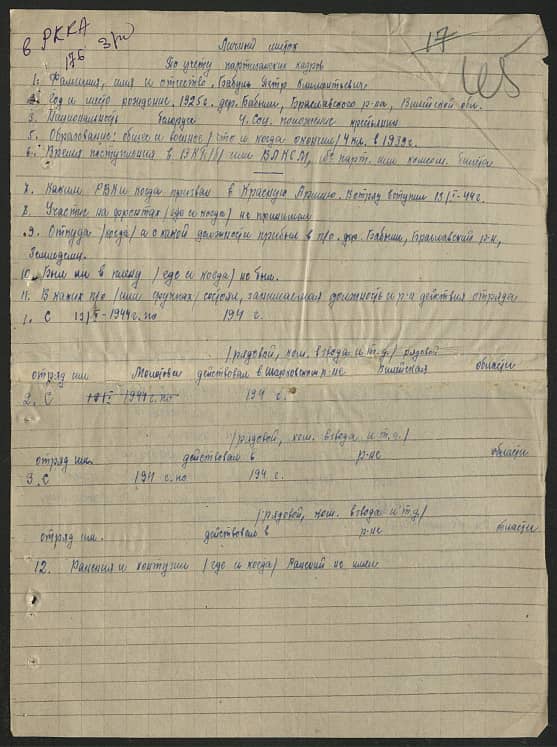 в РККА
176
17
Личный листок
По учету партизанских кадров
1. Фамилия, имя и отчество. Бабуль Петр
2. Год и место рождение. 1925г. дер. Бабыли, Браславского р-на, Вилейской обл.
3. Национальность белорус 4. Соц. положение крестьянин
5. Образование: общее и военное /что и когда окончил/ 4 кл. в 1939г.
6. Время поступления в ВКП/б/ или ВЛКСМ, № парт. или комсом. билета
7. Каким РВК и когда призван в Красную Армию. В отряд вступил 13/I-44г.
8. Участие на фронтах /где и когда/ не принимал
9. Откуда /когда/ и с какой должности прибыл в п/о. дер. Бабыли, Браславский р-н,
10. Был ли в плену /где и когда/ не был.
11. В каких п/о /или группах/ состоял, занимаемая должность и р-н действия отряда
1. С 13/I-1944г. по 194 г.
/рядовой, ком. взвода и т.д./ рядовой
отряд им Молотова действовал в Шарковском р-не Вилейская области
2. С 1944г. по 194 г.
/рядовой, ком. взвода и т.д./
отряд им. действовал в р-не области
3. С 194 г. по 194 г.
/рядовой, ком. взвода и т.д./
отряд им. действовал в р-не области
12. Ранения и контузии /где и когда/ Ранений не имел